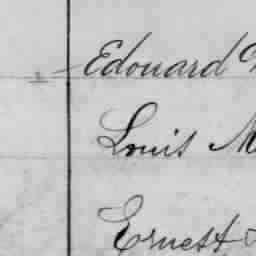 Edouard
Louis M
Ernest